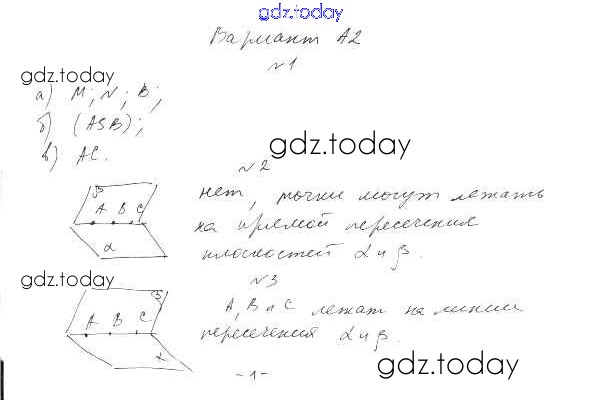 gdz.today
Вариант А2
gdz.today
№1
а) M; N; B;
б) (ASB);
в) AC.
gdz.today
№2
нет, точки могут лежать
на прямой пересечения
плоскостей α и β.
β
A B C
α
gdz.today
№3
A, B и C лежат на линии
пересечения α и β.
β
A B C
α
gdz.today
-1-